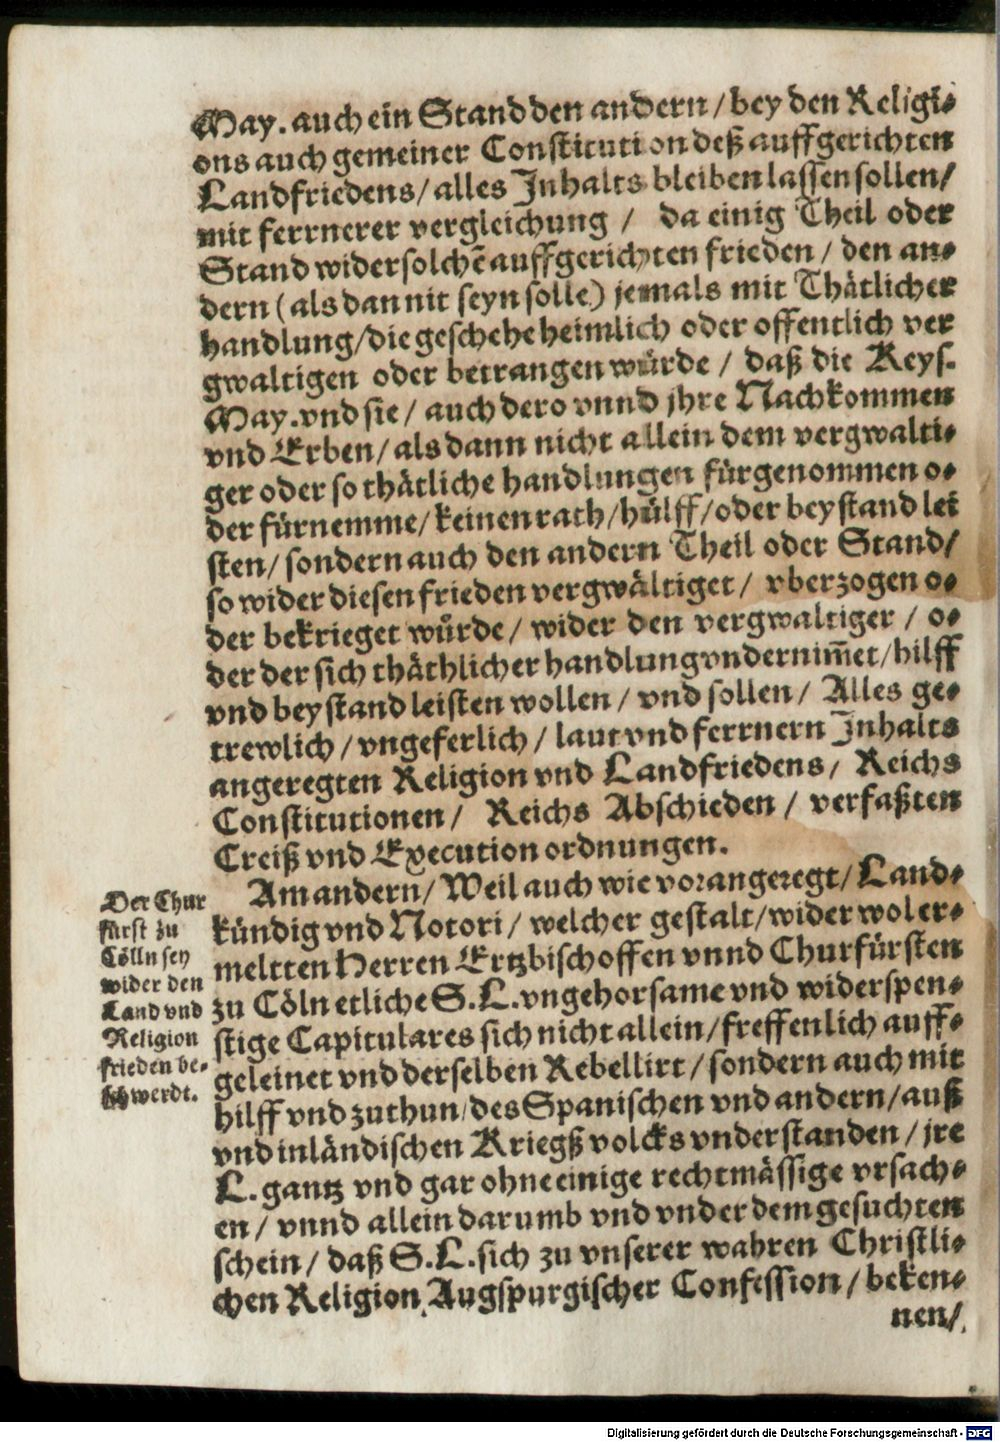 May. auch ein Stand den andern / bey den Religi⸗
ons auch gemeiner Constitution deß auffgerichten
Landfriedens / alles Jnhalts bleiben lassen sollen /
mit ferrnerer vergleichung / da einig Theil oder
Stand wider solchē auffgerichten frieden / den an⸗
dern (als dan nit seyn solle) jemals mit Thätlicher
handlung / die geschehe heimlich oder offentlich ver
gwaltigen oder betrangen würde / daß die Keys.
May. vnd sie / auch dero vnnd jhre Nachkommen
vnd Erben / als dann nicht allein dem vergwalti⸗
ger oder so thätliche handlungen fürgenommen o⸗
der fürnemme / keinen rath / hülff / oder beystand lei
sten / sondern auch den andern Theil oder Stand /
so wider diesen frieden vergwältiget / vberzogen o⸗
der bekrieget würde / wider den vergwaltiger / o⸗
der der sich thäthlicher handlung vndernim̄et / hilff
vnd beystand leisten wollen / vnd sollen / Alles ge⸗
trewlich / vngeferlich / laut vnd ferrnern Jnhalts
angeregten Religion vnd Landfriedens / Reichs
Constitutionen / Reichs Abschieden / verfaßten
Creiß vnd Execution ordnungen.
Am andern / Weil auch wie vorangeregt / Land⸗
kündig vnd Notori / welcher gestalt / wider wol er⸗
meltten Herren Ertzbischoffen vnnd Churfürsten
zu Cöln etliche S. L. vngehorsame vnd widerspen⸗
stige Capitulares sich nicht allein / freffenlich auff⸗
geleinet vnd derselben Rebellirt / sondern auch mit
hilff vnd zuthun / des Spanischen vnd andern / auß
vnd inländischen Kriegß volcks vnderstanden / jre
L. gantz vnd gar ohne einige rechtmässige vrsach⸗
en / vnnd allein darumb vnd vnder dem gesuchten
schein / daß S. L. sich zu vnserer wahren Christli⸗
chen Religion Augspurgischer Confession / beken⸗
nen /
Der Chur
fürst zu
Cölln sey
wider den
Land vnd
Religion
frieden be⸗
schwerdt.
Digitalisierung gefördert durch die Deutsche Forschungsgemeinschaft - DFG